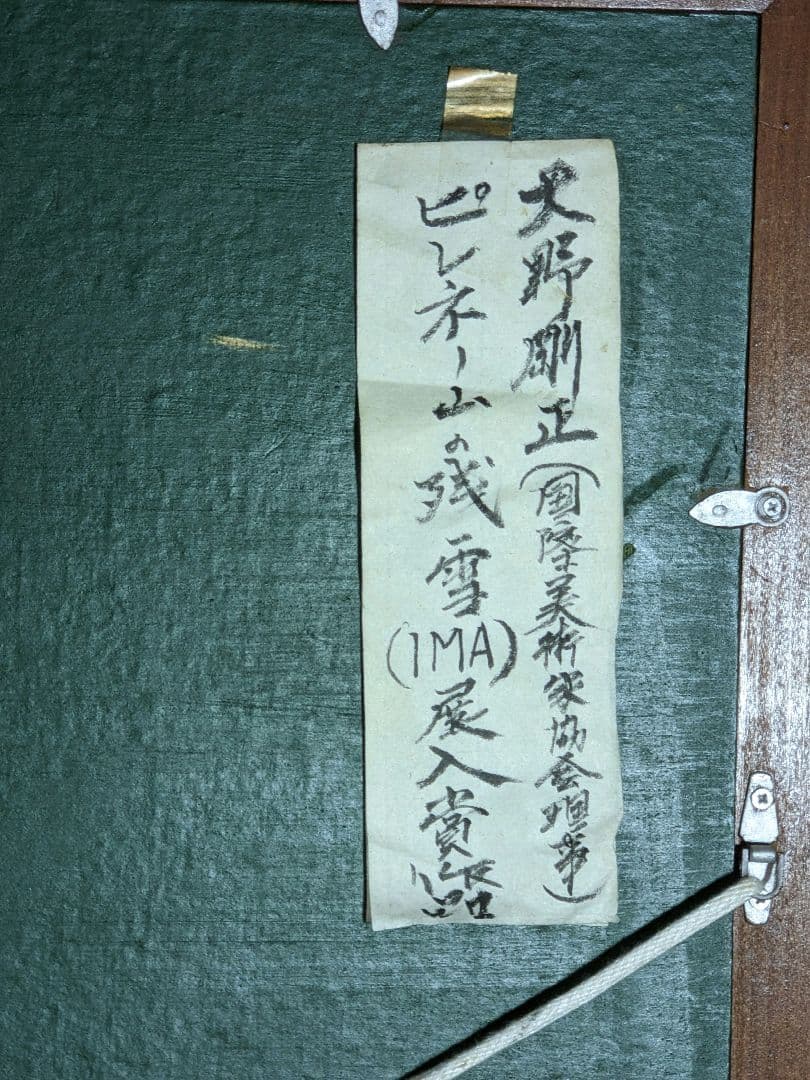 大野剛正(国際美術家協会理事)
ピレネー山の残雪(IMA)展入賞